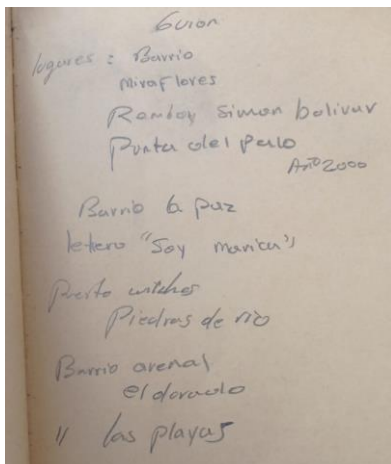 Guion
lugares : Barrio
Miraflores
Simon bolivar
Punta del palo
Año 2000
Barrio la paz
letrero "Soy
Puerto wilches
Piedras de rio
Barrio arenal
el dorado
" las playas